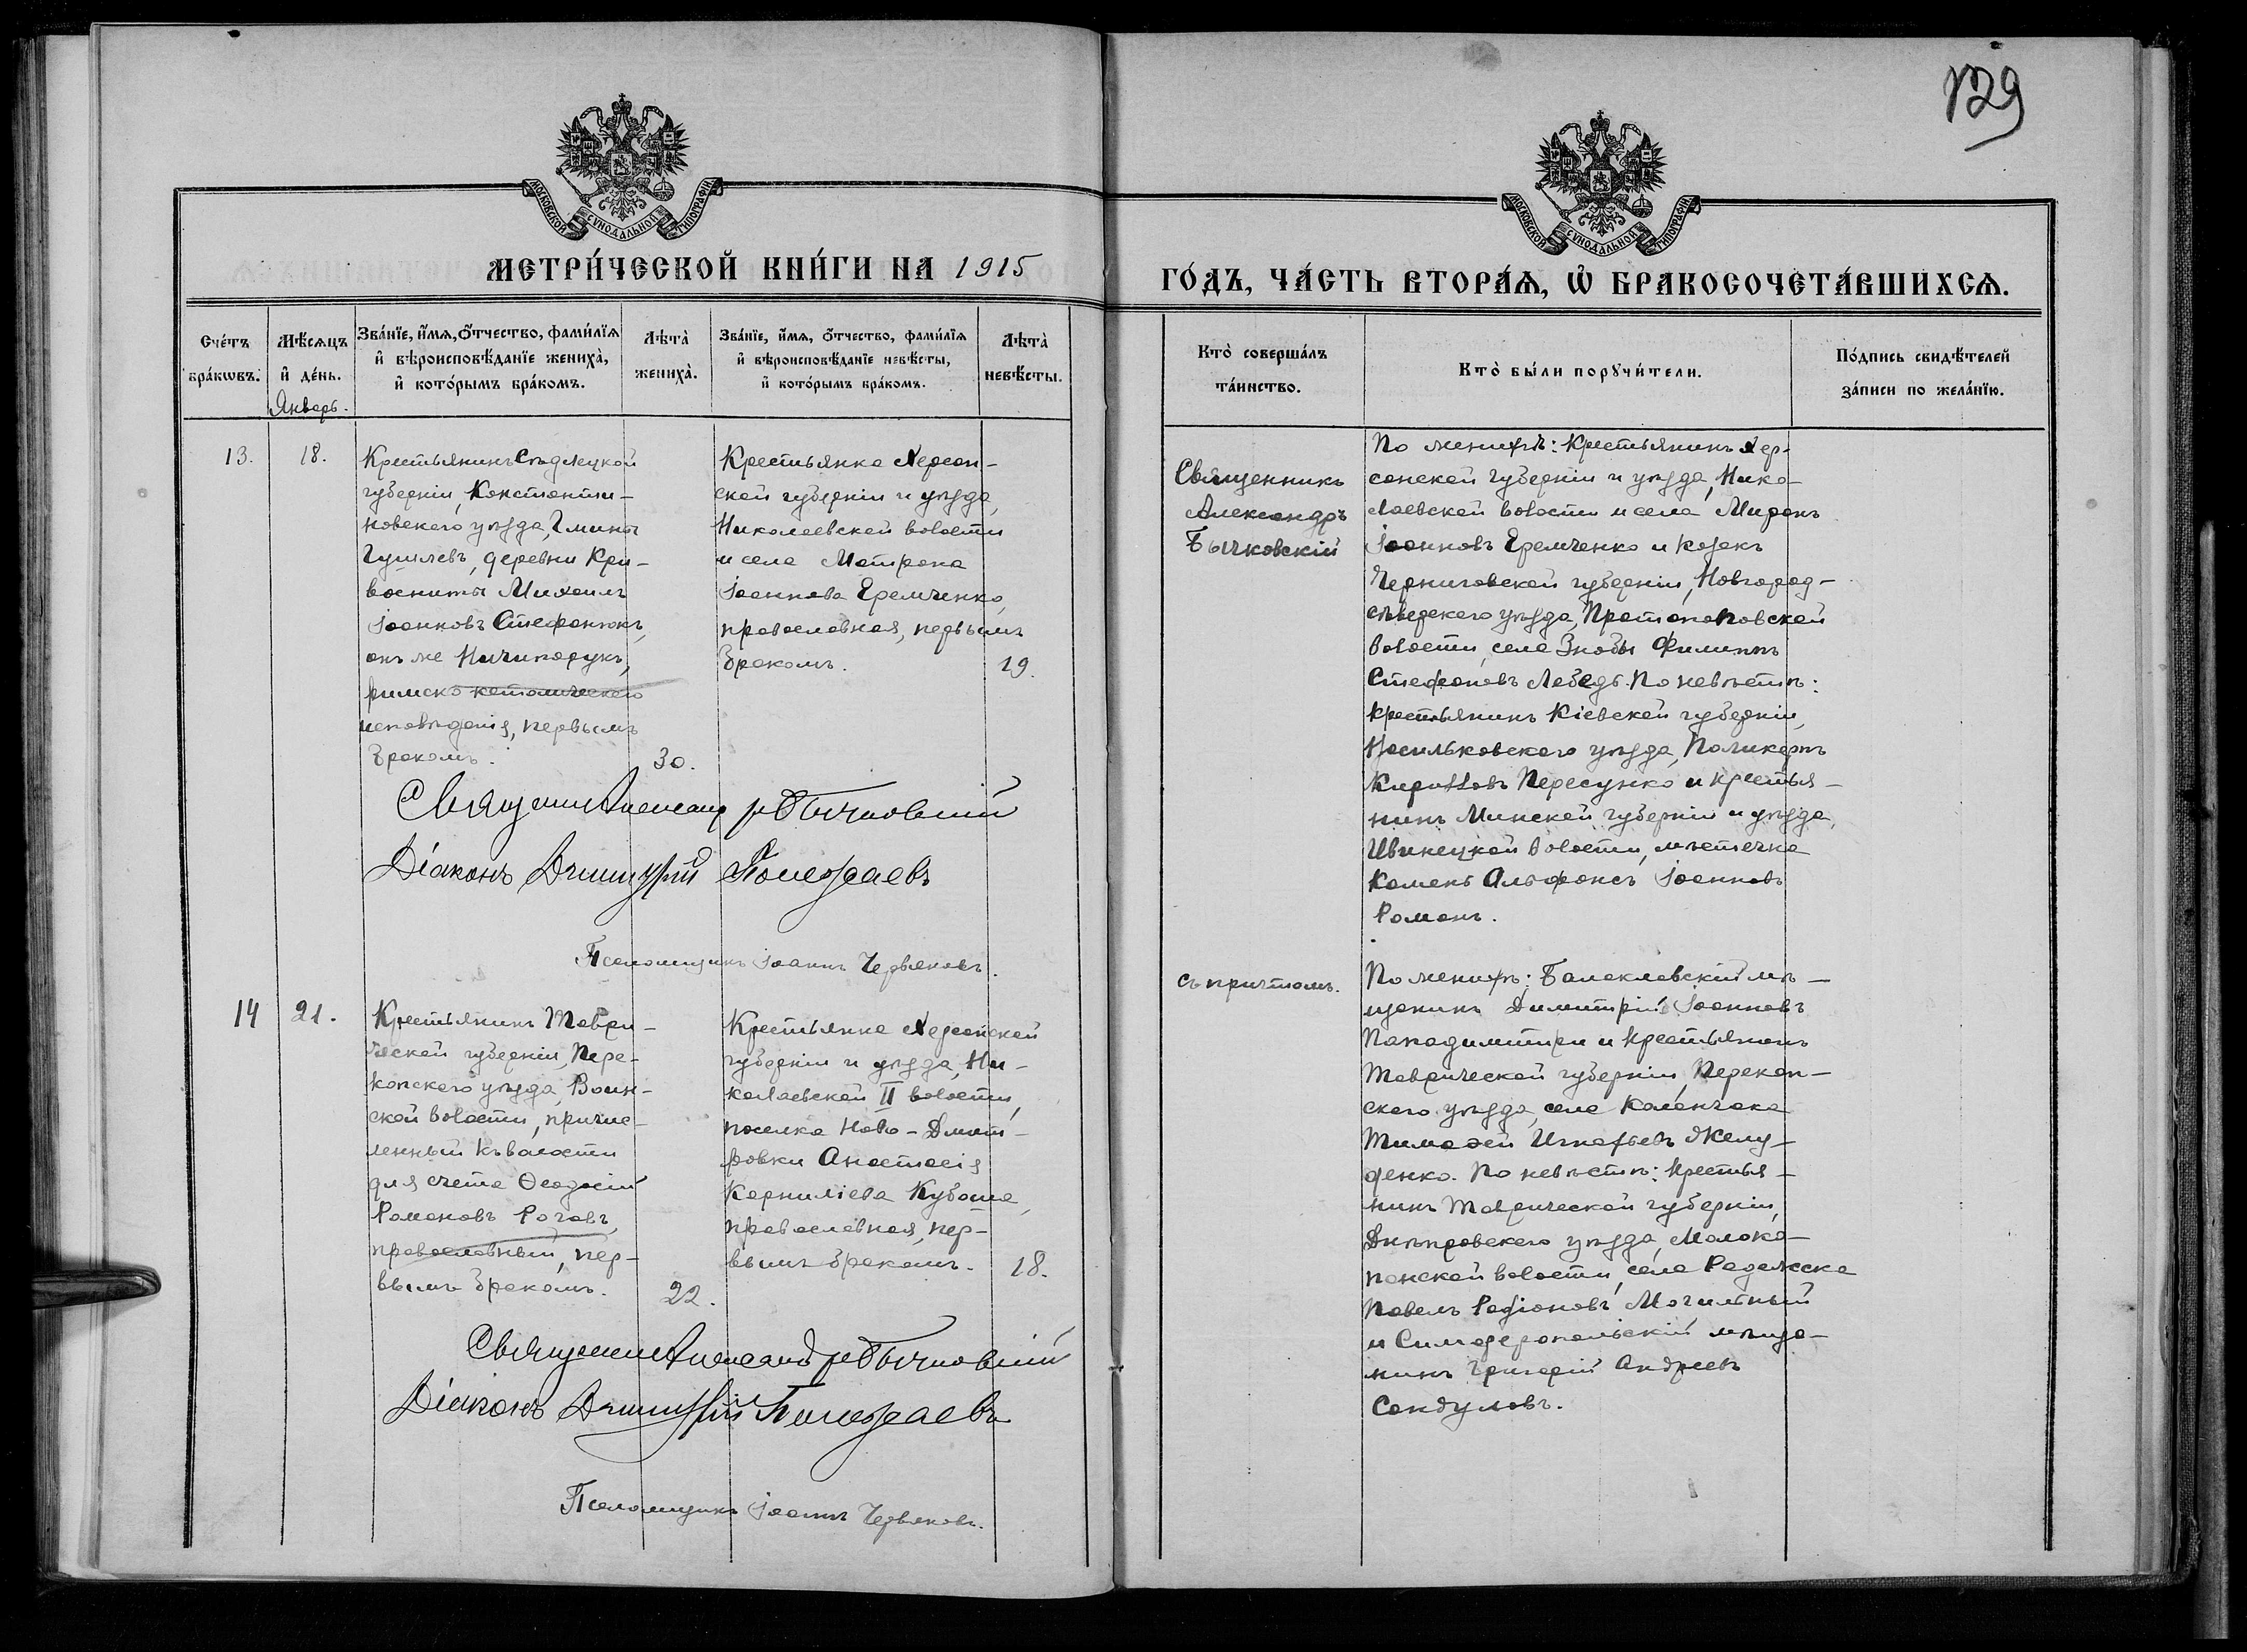 129
МОСКОВСКОЙ СУНОДАЛЬНОЙ ТИПОГРАФІИ
МОСКОВСКОЙ СУНОДАЛЬНОЙ ТИПОГРАФІИ
МЕТРИ́ЧЕСКОЙ КНИ́ГИ НА 1915
ГО́ДЪ, ЧА́СТЬ ВТОРА́Ѧ, Ѽ БРАКОСОЧЕТА́ВШИХСѦ.
Сче́тъ
бра́кѡвъ.
Мѣ́сѧцъ
и҆ де́нь.
Январь.
Зва́нїе, и҆́мѧ, ѻ҆́тчество, фами́лїѧ
и҆ вѣроисповѣ́данїе жениха̀,
и҆ кото́рымъ бра́комъ.
Лѣта̀
жениха̀.
Зва́нїе, и҆́мѧ, ѻ҆́тчество, фами́лїѧ
и҆ вѣроисповѣ́данїе невѣ́сты,
и҆ кото́рымъ бра́комъ.
Лѣта̀
невѣ́сты.
Кто̀ соверша́лъ
та́инство.
Кто̀ бы́ли порꙋчи́тели.
По́дпись свидѣ́телей
за́писи по жела́нїю.
13.
18.
Крестьянинъ Сѣдлецкой
губерніи, Константи-
новскаго уѣзда, Гмины
деревни Кри-
Михаилъ
Іоанновъ Стефанюкъ,
онъ же Ничипорукъ,
римско католическаго
исповѣданія, первымъ
бракомъ.
30.
Крестьянка Херсон-
ской губерніи и уѣзда,
Николаевской волости
и села Матрона
Іоаннова Еремченко,
православная, первымъ
бракомъ.
19.
Священникъ
Александръ
Бычковскій
По женихѣ: Крестьянинъ Хер-
сонской губерніи и уѣзда, Нико-
лаевской волости и села Миронъ
Іоанновъ Еремченко и козакъ
Черниговской губерніи, Новгород-
сѣверскаго уѣзда, Протопоповской
волости, села Знобы Филиппъ
Стефановъ Лебедь. По невѣстѣ:
крестьянинъ Кіевской губерніи,
уѣзда, Поликарпъ
Кирилловъ Пересунко и крестья-
нинъ Минской губерніи и уѣзда,
Ивенецкой волости, мѣстечка
Камень Альфонсъ Іоанновъ
Романъ.
Священникъ Александръ Бычковскій
Діаконъ Димитрій Полежаевъ
Псаломщикъ Іоаннъ Червяковъ.
14
21.
Крестьянинъ Таври-
ческой губерніи, Пере-
копскаго уѣзда, Воин-
ской волости, причис-
ленный къ волости
для счета Ѳеодосій
Романовъ Роговъ,
православный, пер-
вымъ бракомъ.
22.
Крестьянка Херсонской
губерніи и уѣзда, Ни-
колаевской II волости,
поселка Ново-Дмит-
ровки Анастасія
Корниліева Кубаша,
православная, пер-
вымъ бракомъ.
18.
съ причтомъ.
По женихѣ: Балаклавскій мѣ-
щанинъ Димитрій Іоанновъ
Пападимитри и крестьянинъ
Таврической губерніи, Перекоп-
скаго уѣзда, села Каланчака
Тимофей Игнатьевъ Желу-
денко. По невѣстѣ: крестья-
нинъ Таврической губерніи,
Днѣпровскаго уѣзда,
волости, села Раденска
Павелъ Родіоновъ Могильный
и Симферопольскій мѣща-
нинъ Григорій Андреевъ
Сандуловъ.
Священникъ Александръ Бычковскій
Діаконъ Димитрій Полежаевъ
Псаломщикъ Іоаннъ Червяковъ.